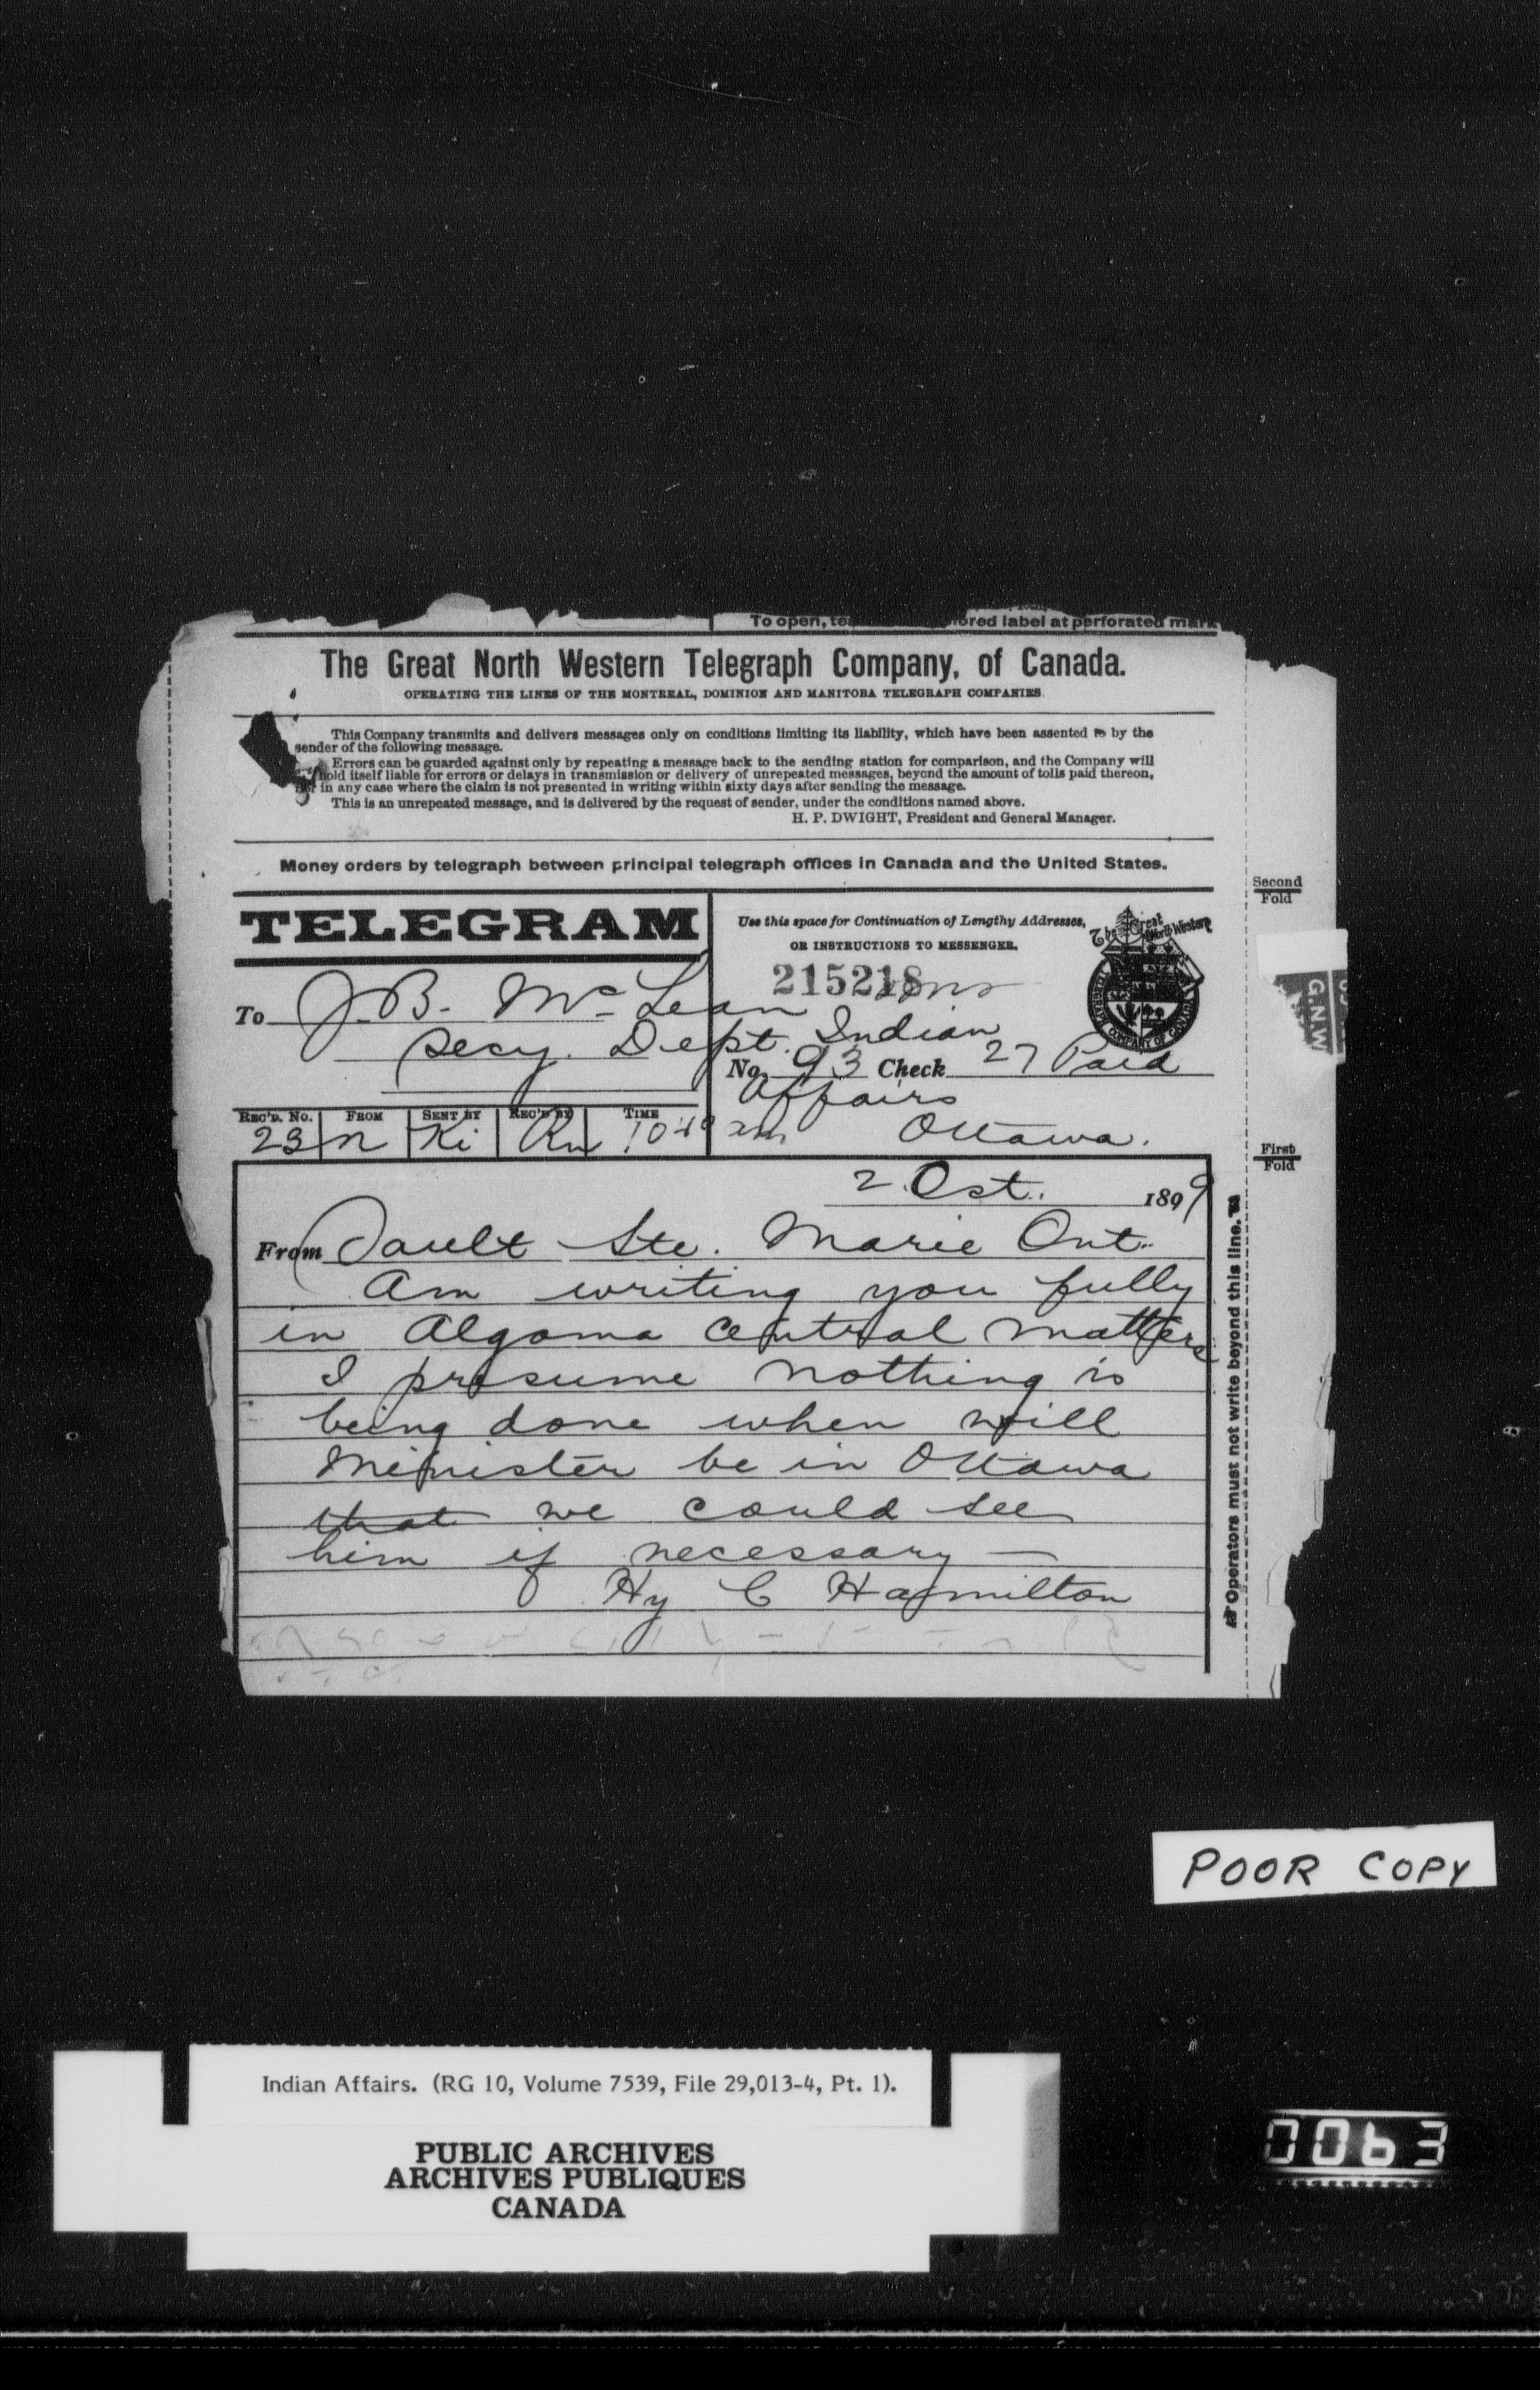 To open, ored label at perforated mark
The Great North Western Telegraph Company, of Canada.
OPERATING THE LINES OF THE MONTREAL, DOMINION AND MANITOBA TELEGRAPH COMPANIES.
This Company transmits and delivers messages only on conditions limiting its liability, which have been assented to by the
sender of the following message.
Errors can be guarded against only by repeating a message back to the sending station for comparison, and the Company will
hold itself liable for errors or delays in transmission or delivery of unrepeated messages, beyond the amount of tolls paid thereon,
nor in any case where the claim is not presented in writing within sixty days after sending the message.
This is an unrepeated message, and is delivered by the request of sender, under the conditions named above.
H. P. DWIGHT, President and General Manager.
Money orders by telegraph between principal telegraph offices in Canada and the United States.
Second
Fold
TELEGRAM
Use this space for Continuation of Lengthy Addresses,
OR INSTRUCTIONS TO MESSENGER.
The Great North Western
TELEGRAPH COMPANY OF CANADA
G.N.W
215218
To J. B. McLean
Secy. Dept. Indian
No. 93 Check 27 Paid
Affairs
REC'D. No. FROM SENT BY REC'D BY TIME
23 n Ki Rn 10 49 am Ottawa.
First
Fold
2 Oct. 1899
From Sault Ste. Marie Ont.
Am writing you fully
in Algoma Central matters
I presume nothing is
being done when will
Minister be in Ottawa
that we could see
him if necessary —
Hy C Hamilton
Operators must not write beyond this line.
POOR COPY
Indian Affairs. (RG 10, Volume 7539, File 29,013-4, Pt. 1).
PUBLIC ARCHIVES
ARCHIVES PUBLIQUES
CANADA
0063